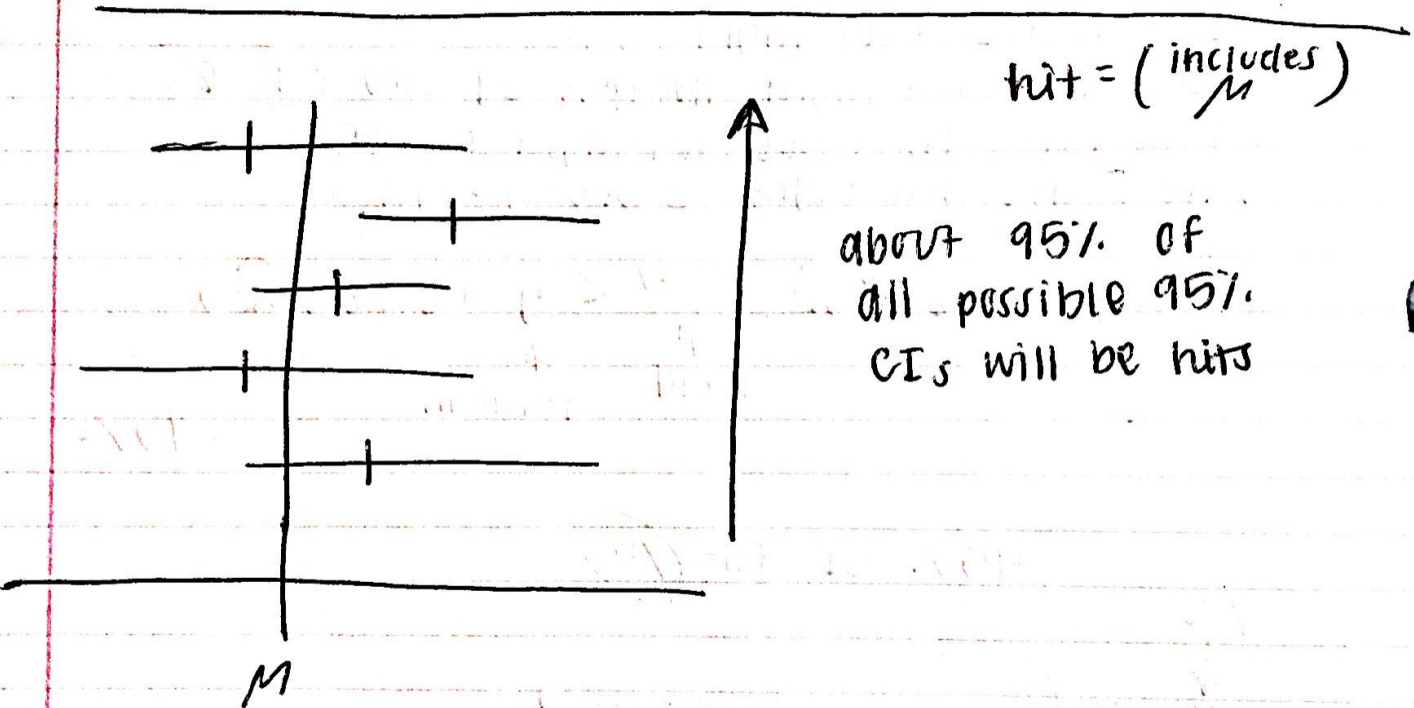 hit = ( includes μ )
about 95% of
all possible 95%
CIs will be hits
μ